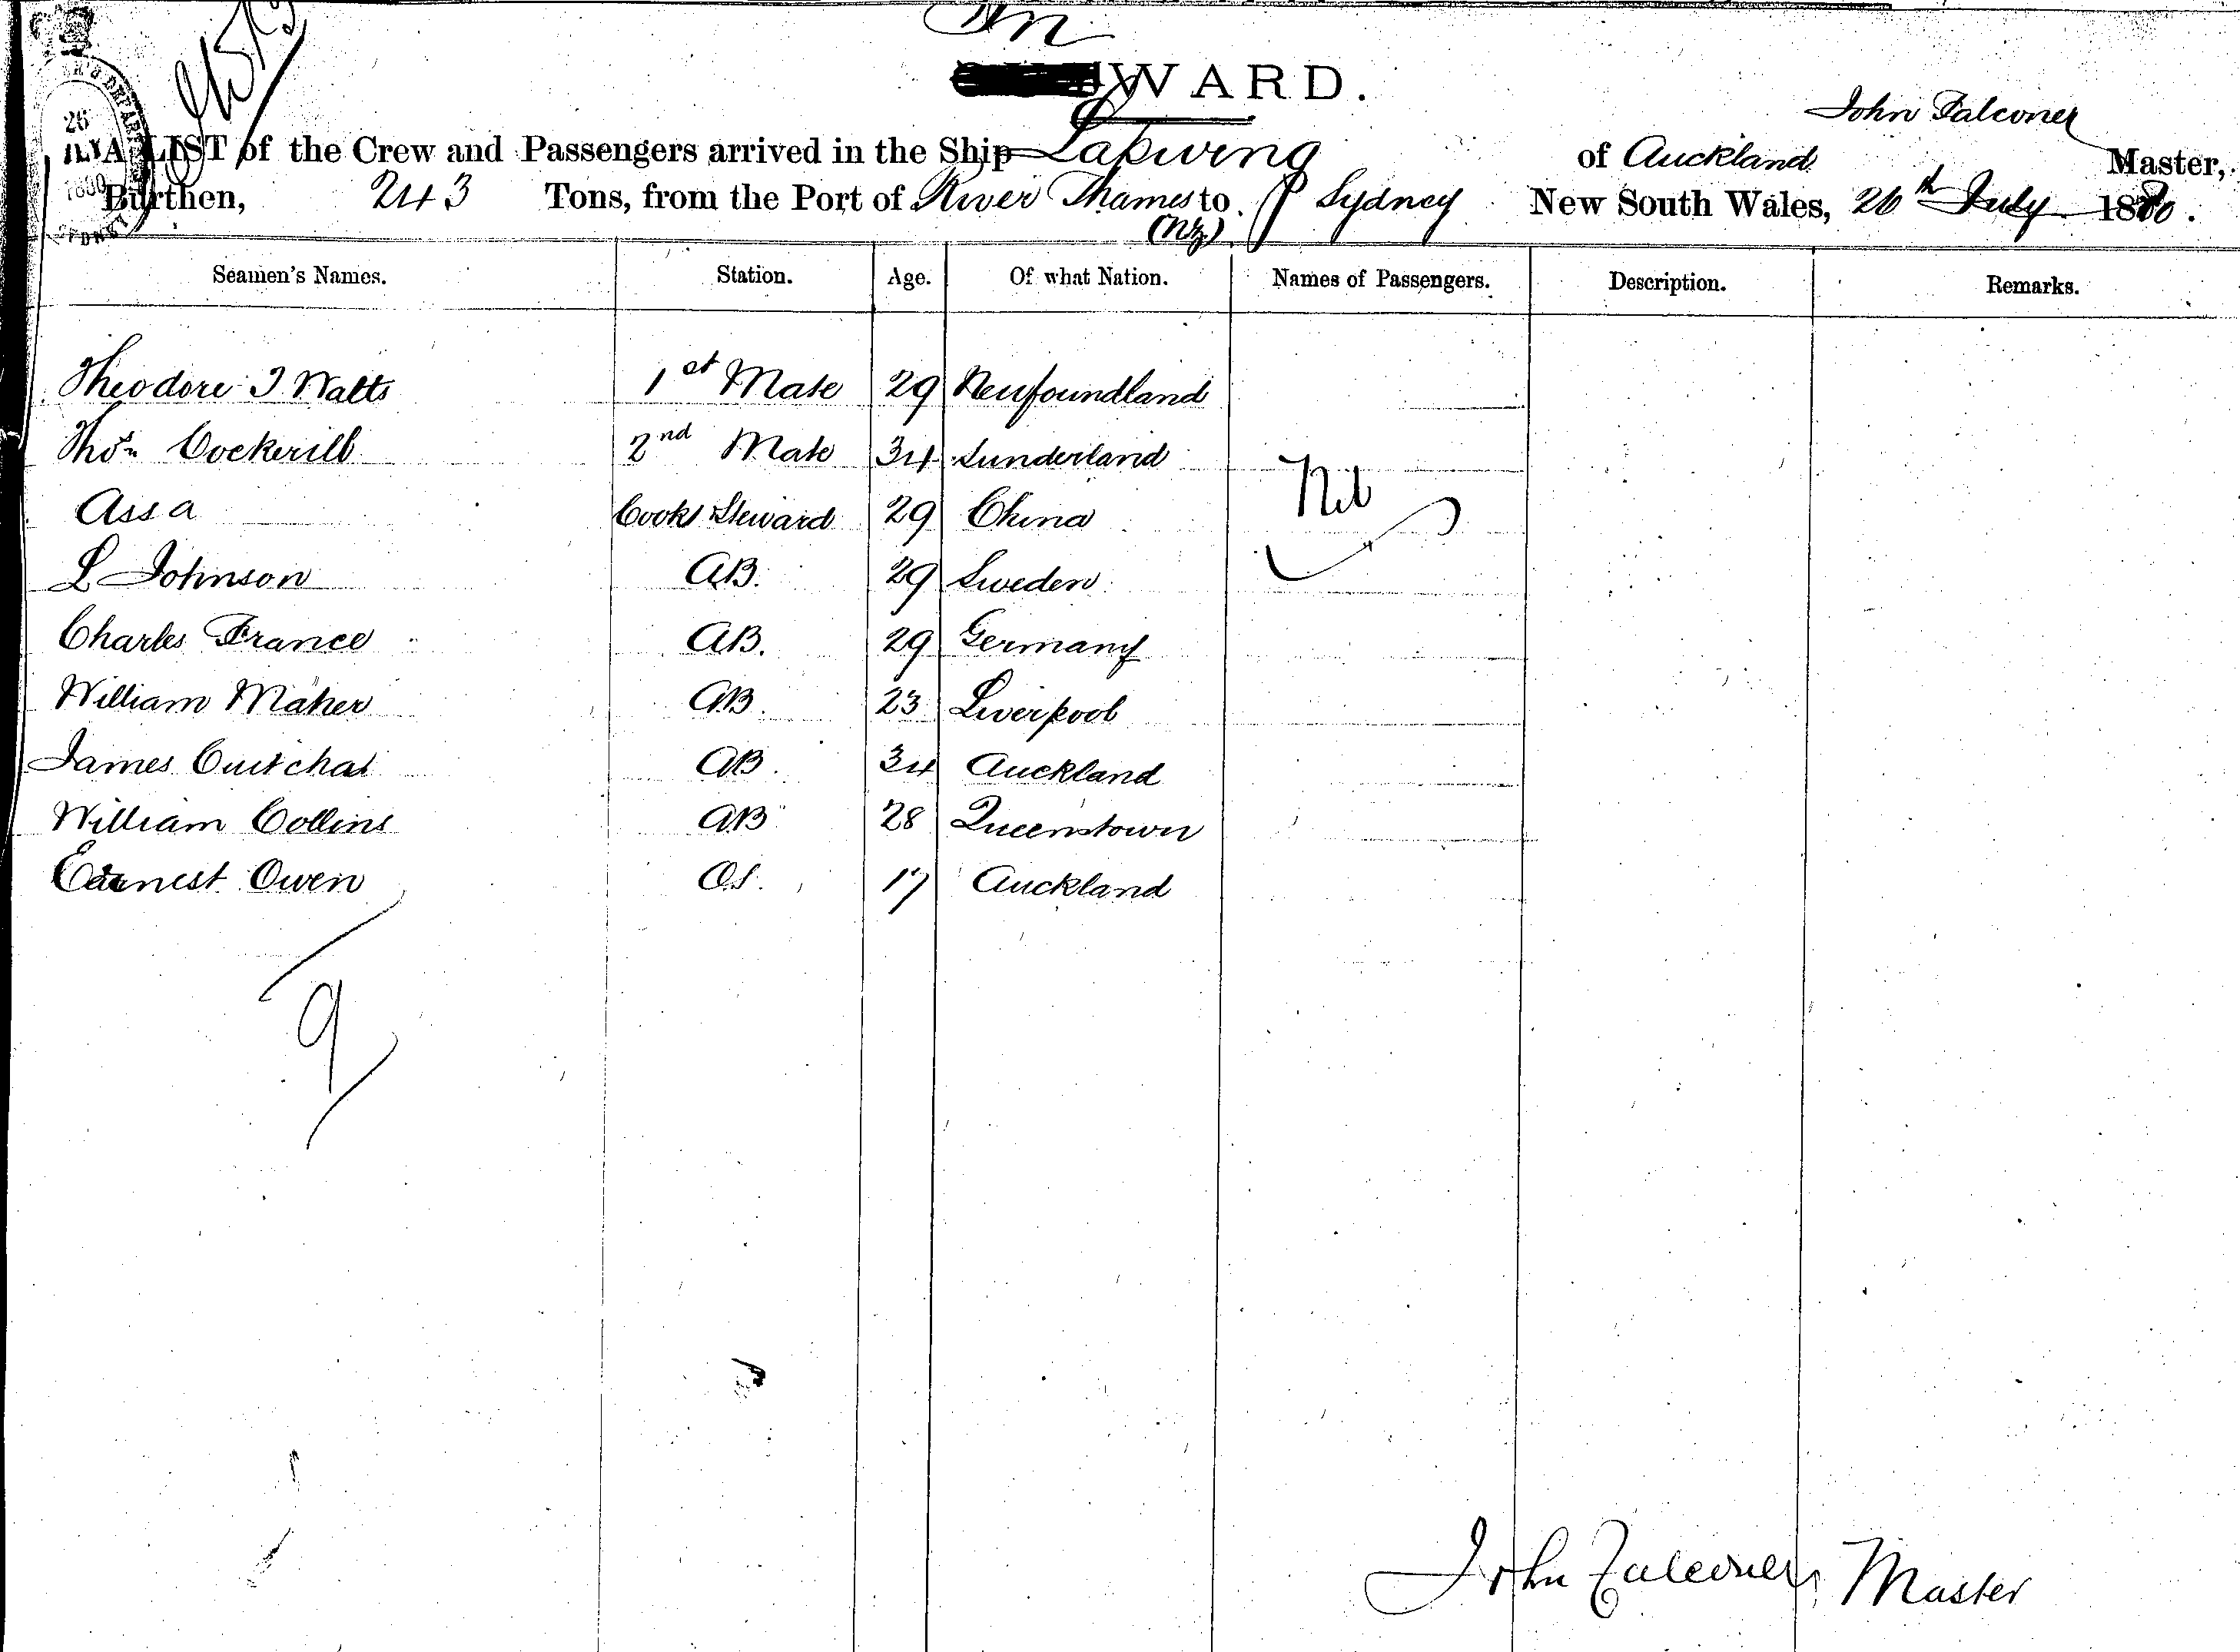 In
WARD.
John Falconer
A LIST of the Crew and Passengers arrived in the Ship Lapwing of Auckland Master,
Burthen, 243 Tons, from the Port of River Thames to Sydney New South Wales, 26th July 1880.
(NZ)
Seamen's Names. Station. Age. Of what Nation. Names of Passengers. Description. Remarks.
Theodore J Watts 1st Mate 29 Newfoundland
Thos Cockerill 2nd Mate 34 Sunderland
Assa Cook & Steward 29 China Nil
L Johnson AB. 29 Sweden
Charles France AB. 29 Germany
William Maher AB. 23 Liverpool
James AB. 34 Auckland
William Collins AB 28 Queenstown
Earnest Owen O.S. 17 Auckland
9
John Falconer, Master